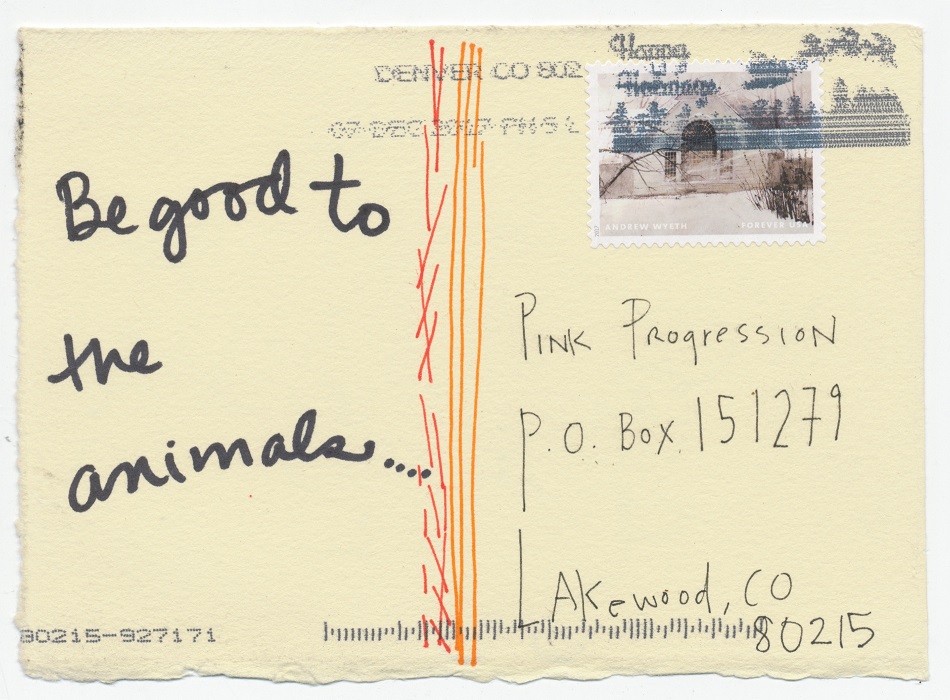 DENVER CO 802
07 DEC 2017 PM 5 L
ANDREW WYETH FOREVER USA
Be good to
the
animals....
PINK PROgRESSION
P.O. BOX 151279
LAKewood, CO
80215
80215-927171